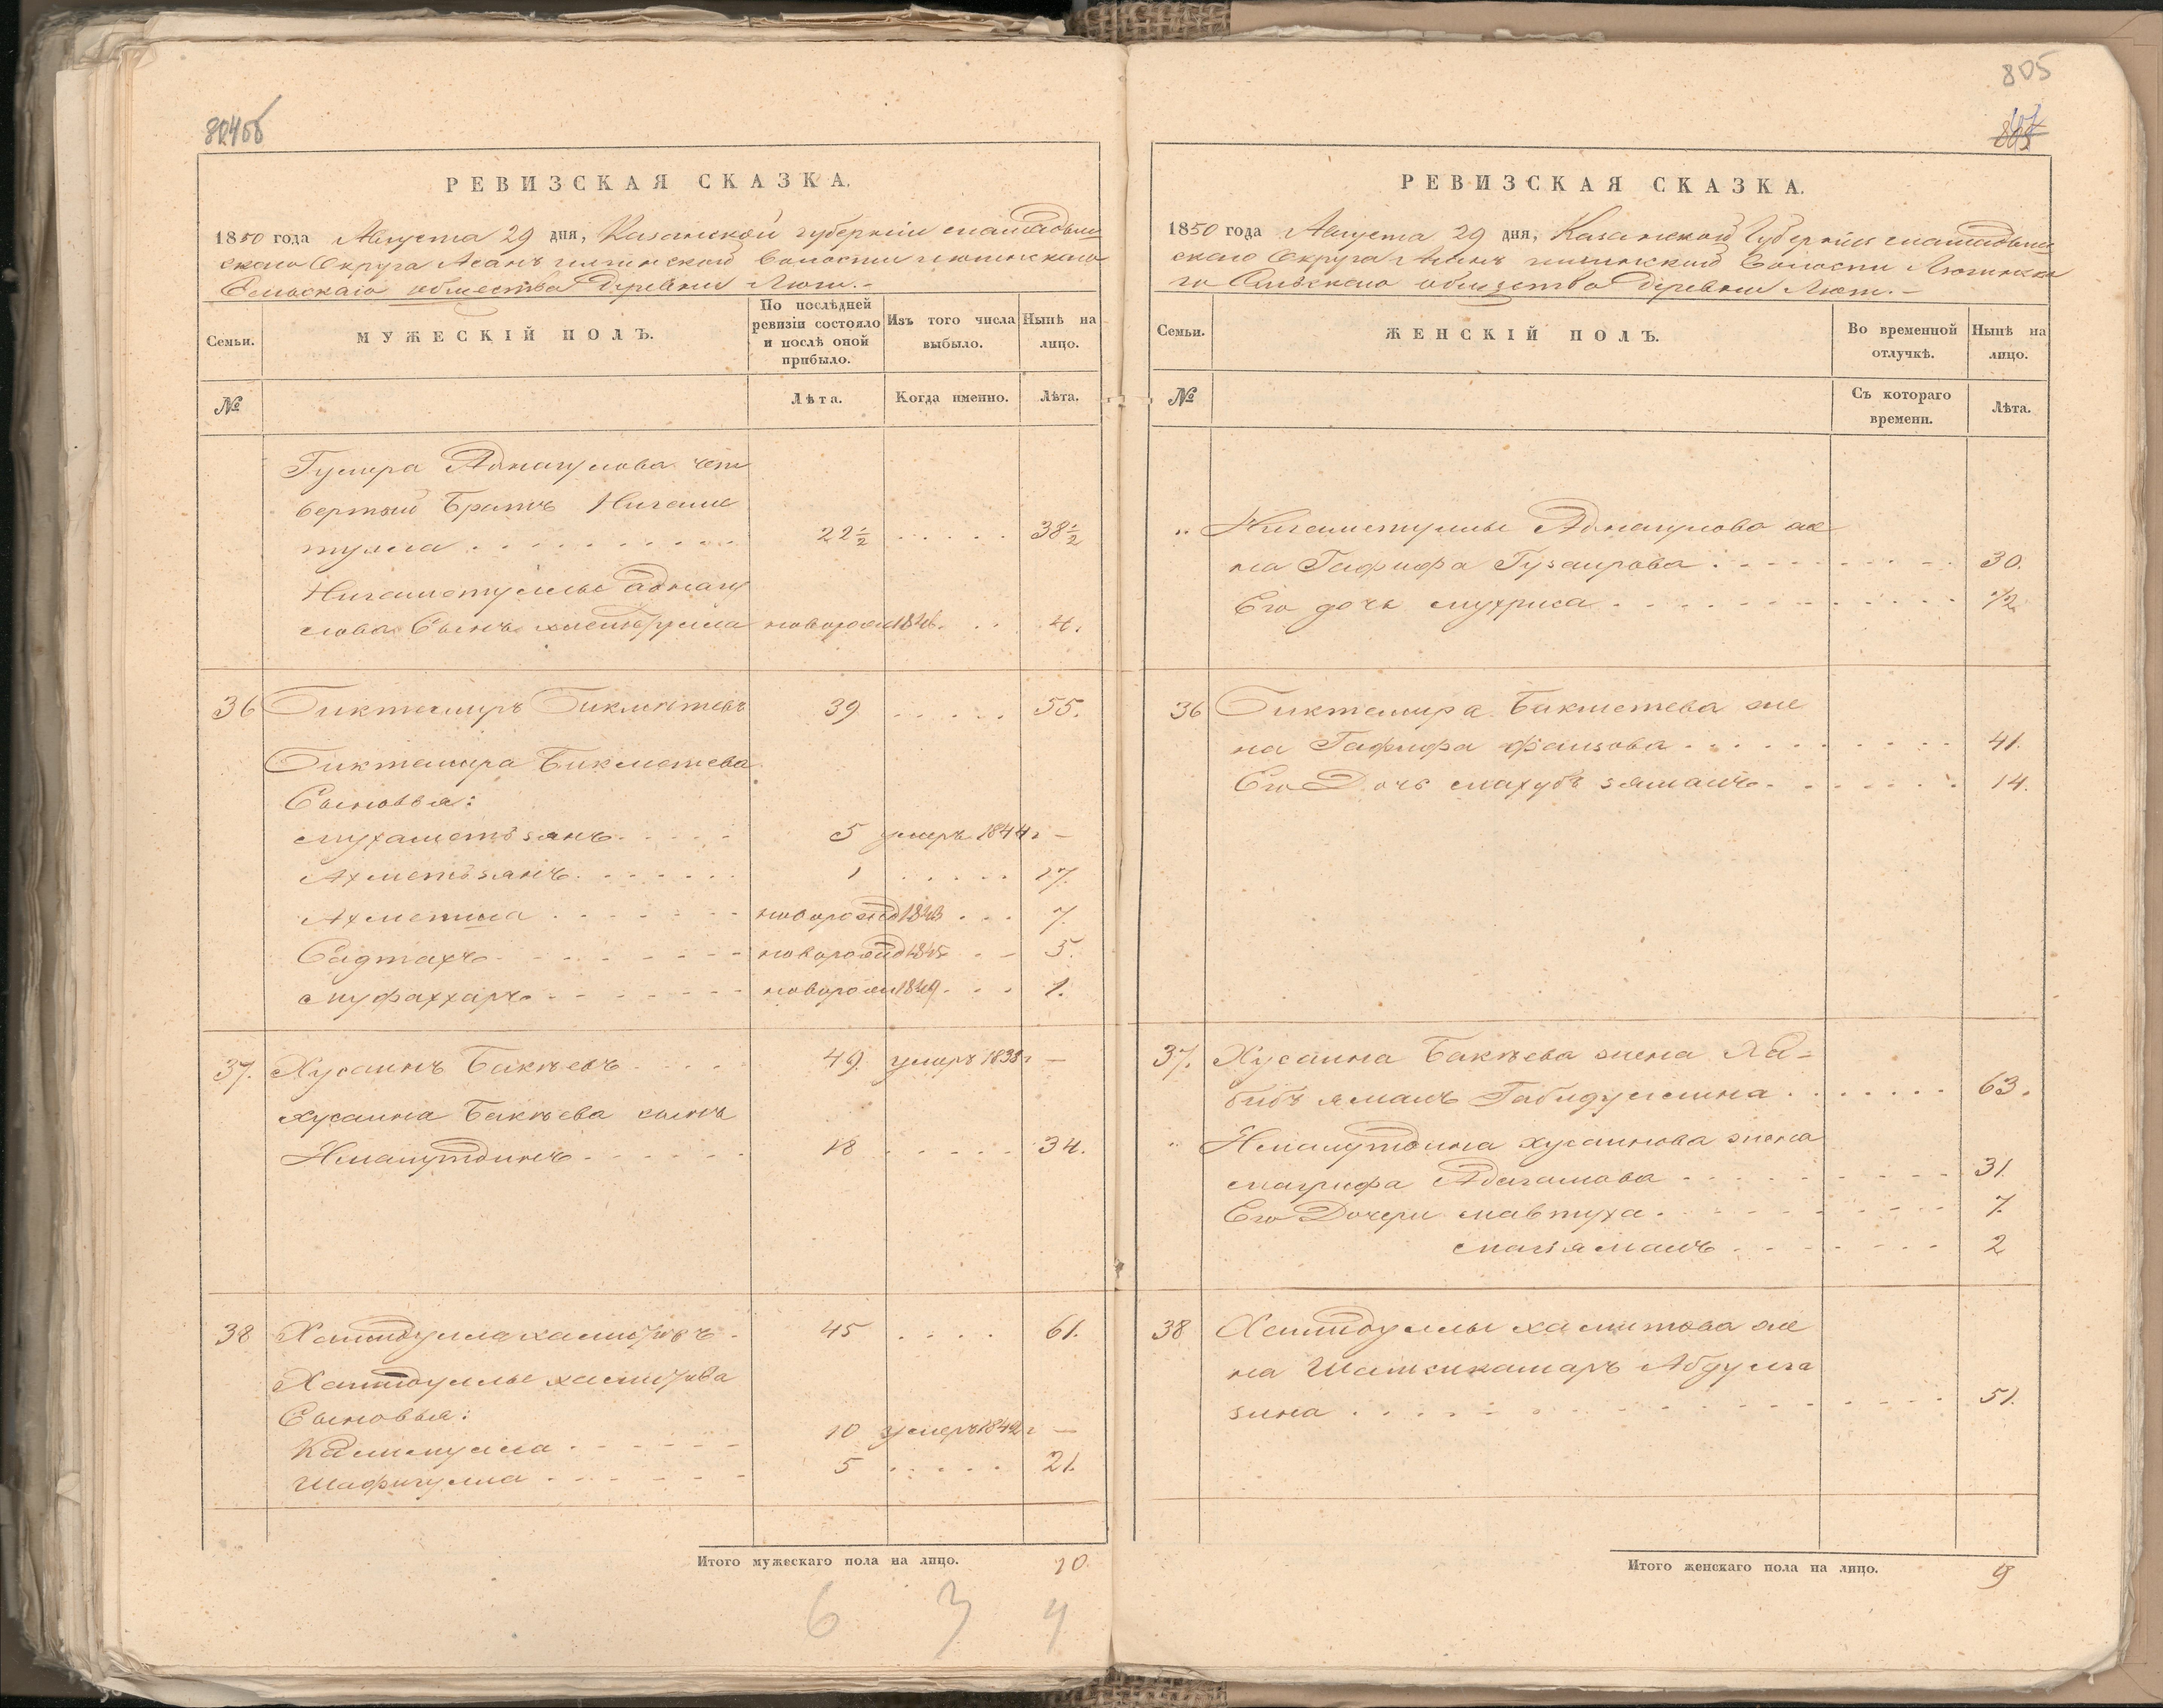 804об
РЕВИЗСКАЯ СКАЗКА.
1850 года Августа 29 дня, Казанской губернии мамадыш
скаго Округа Асанъ илгинской волости лютинскаго
Сельскаго общества Деревни Лют.
Семьи.
МУЖЕСКІЙ ПОЛЪ.
По послѣдней
ревизіи состояло
и послѣ оной
прибыло.
Изъ того числа
выбыло.
Нынѣ на
лицо.
№
Лѣта.
Когда именно.
Лѣта.
Гумера Адналулова чет
вертый Братъ Нигаме
тулла 22½ 38½
Нигаметуллы
лова Сынъ новорож 1846 4.
36 Биктемиръ Бикметевъ 39 55.
Биктемира Бикметева
Сыновья:
мухаметзянъ 5 умеръ 1844 г —
Ахметзянъ 1 17.
Ахметша новорожд 1843 7.
Садтахъ новорожд 1845 5.
муфаххаръ новорож 1849 1.
37. Хусаинъ Бакѣевъ 49. умеръ 1835 г —
хусаина Бакѣева сынъ
Нмамутдинъ 18 34.
38 Хамидулла хамитовъ 45 61.
Хамидуллы хамитова
Сыновья:
Калимулла 10 умеръ 1842 г —
Шафигулла 5 21.
Итого мужескаго пола на лицо. 10.
6 3 4
805
РЕВИЗСКАЯ СКАЗКА.
1850 года Августа 29 дня, Казанской Губернии мамадыш
скаго Округа Асанъ илгинской Волости Лютинска
го Сельскаго общества Деревни Лют.
Семьи.
ЖЕНСКІЙ ПОЛЪ.
Во временной
отлучкѣ.
Нынѣ на
лицо.
№
Съ котораго
времени.
Лѣта.
„ Нигаметуллы Адналулова же
на Гафифа Гузаирова 30.
Его дочь мухриса ½
36 Биктемира Бикметева же
на Гафифа фаизова 41.
Его Дочь махубъ зямалъ 14.
37. Хусаина Бакѣева жена Ха-
бибъ ямалъ Габидуллина 63.
„ Нмамутдина хусаинова жена
магрифа Адагамова 31.
Его Дочери мавтуха 7.
магзямалъ 2
38 Хамидуллы хамитова же
на Шамсикамаръ Абдулга
зина 51.
Итого женскаго пола на лицо. 9